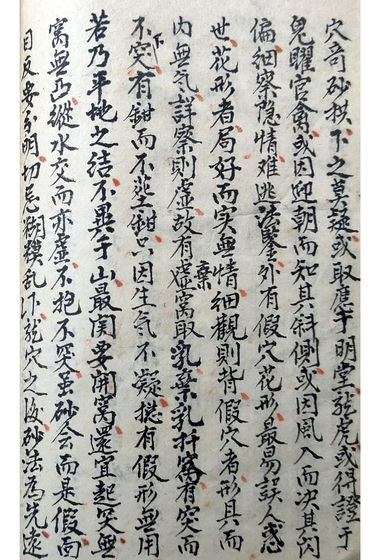 穴奇砂拱下之莫疑或取應于明堂龍虎或得證于
鬼曜官禽或因迎朝而知其斜側或因風入而決其
偏細察隐情难逃法鑒外有假穴花形最易誤人惑
世花形者局好而实無情細觀則背假穴者形具而
内無氣詳察則虚故有棄虚窩取乳棄乳扦窩有突而
不下突有鉗而不鉗只因生氣不凝搃有假形無用
若乃平地之结不異于山最関要開窩還宜起突無
窩無凸縱水交而亦虚不抱不突虽砂会而是假向
日反明切忌糊模乱下穴之後砂法為先遠